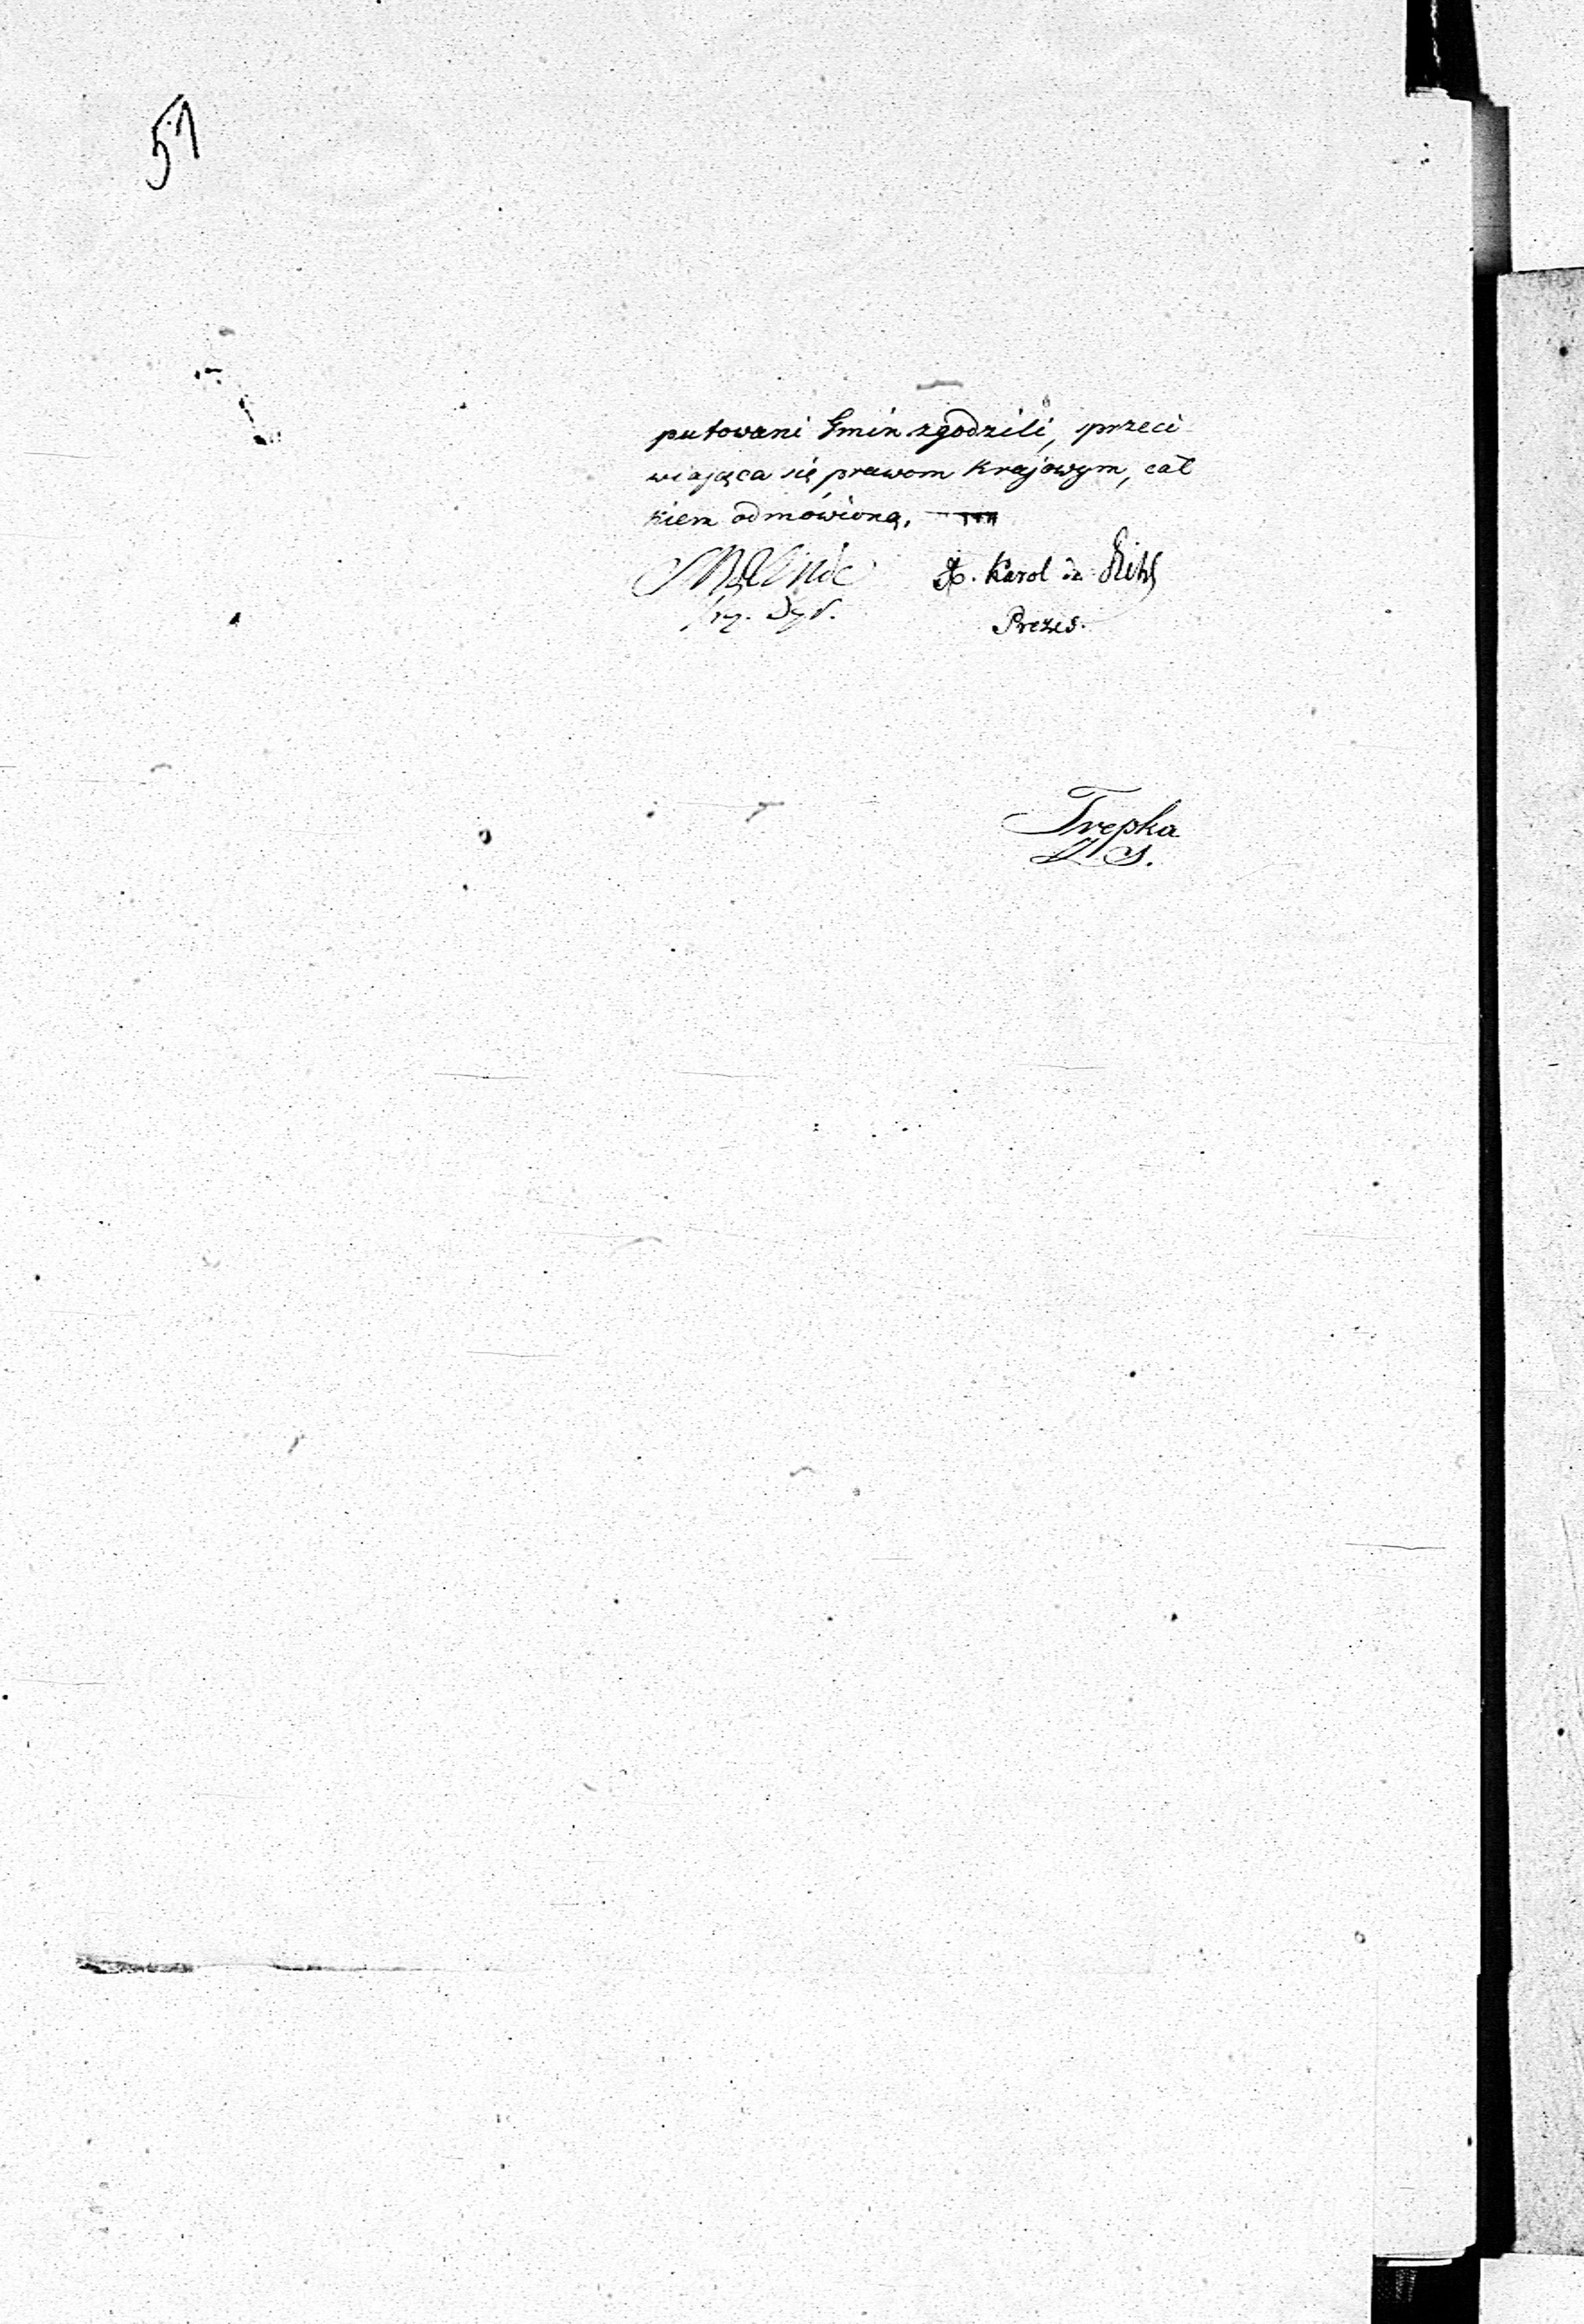 51
putowani Gmin zgodzili, sprzeci
wiająca się prawom krajowym, cał
kiem odmówioną.
X. Karol de
Prezes.
Trepka
S.